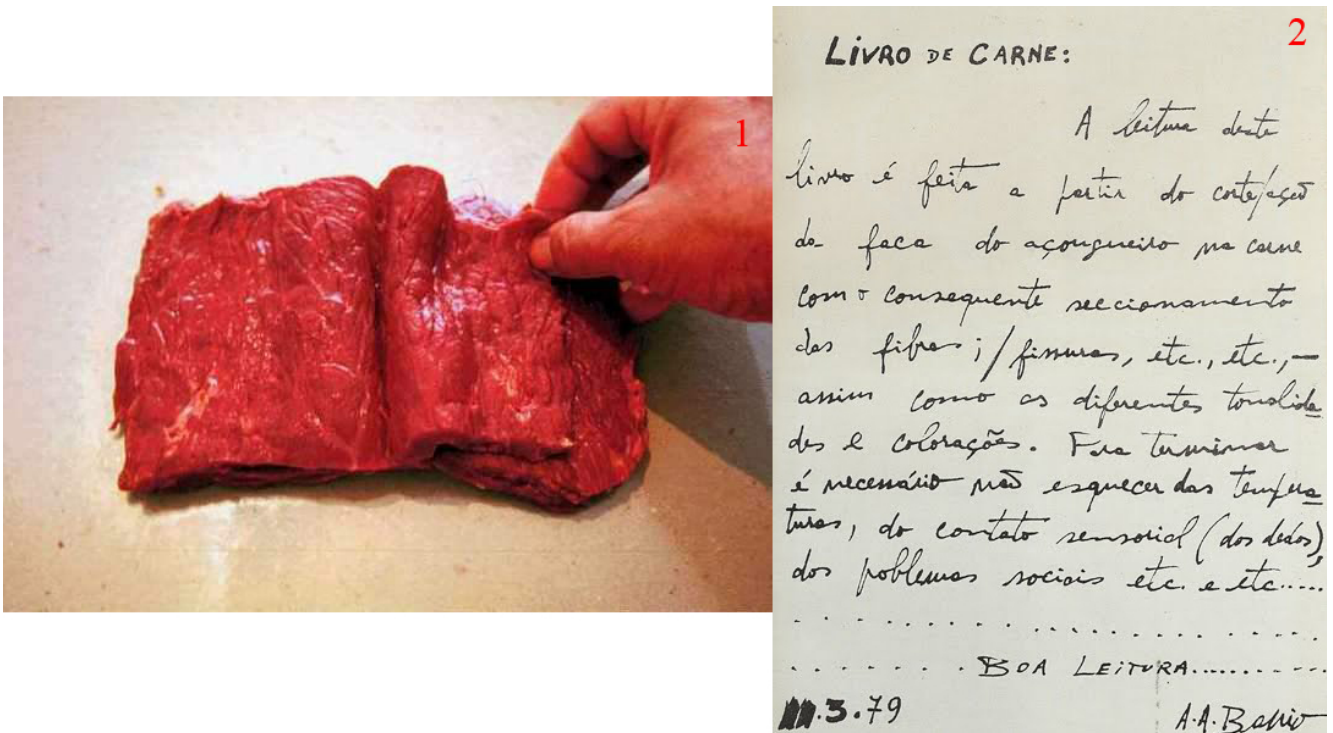 1
2
LIVRO DE CARNE:
A leitura deste
livro é feita a partir do corte/ação
da faca do açougueiro na carne
com o consequente seccionamento
das fibras; / fissuras, etc., etc., —
assim como as diferentes tonalida
des e colorações. Para terminar
é necessário não esquecer das tempera
turas, do contato sensorial (dos dedos),
dos problemas sociais etc. e etc.....
. . . . . . . . . . . . . . . . . .
. . . . . . . BOA LEITURA...........
.3.79 A.A.Barrio